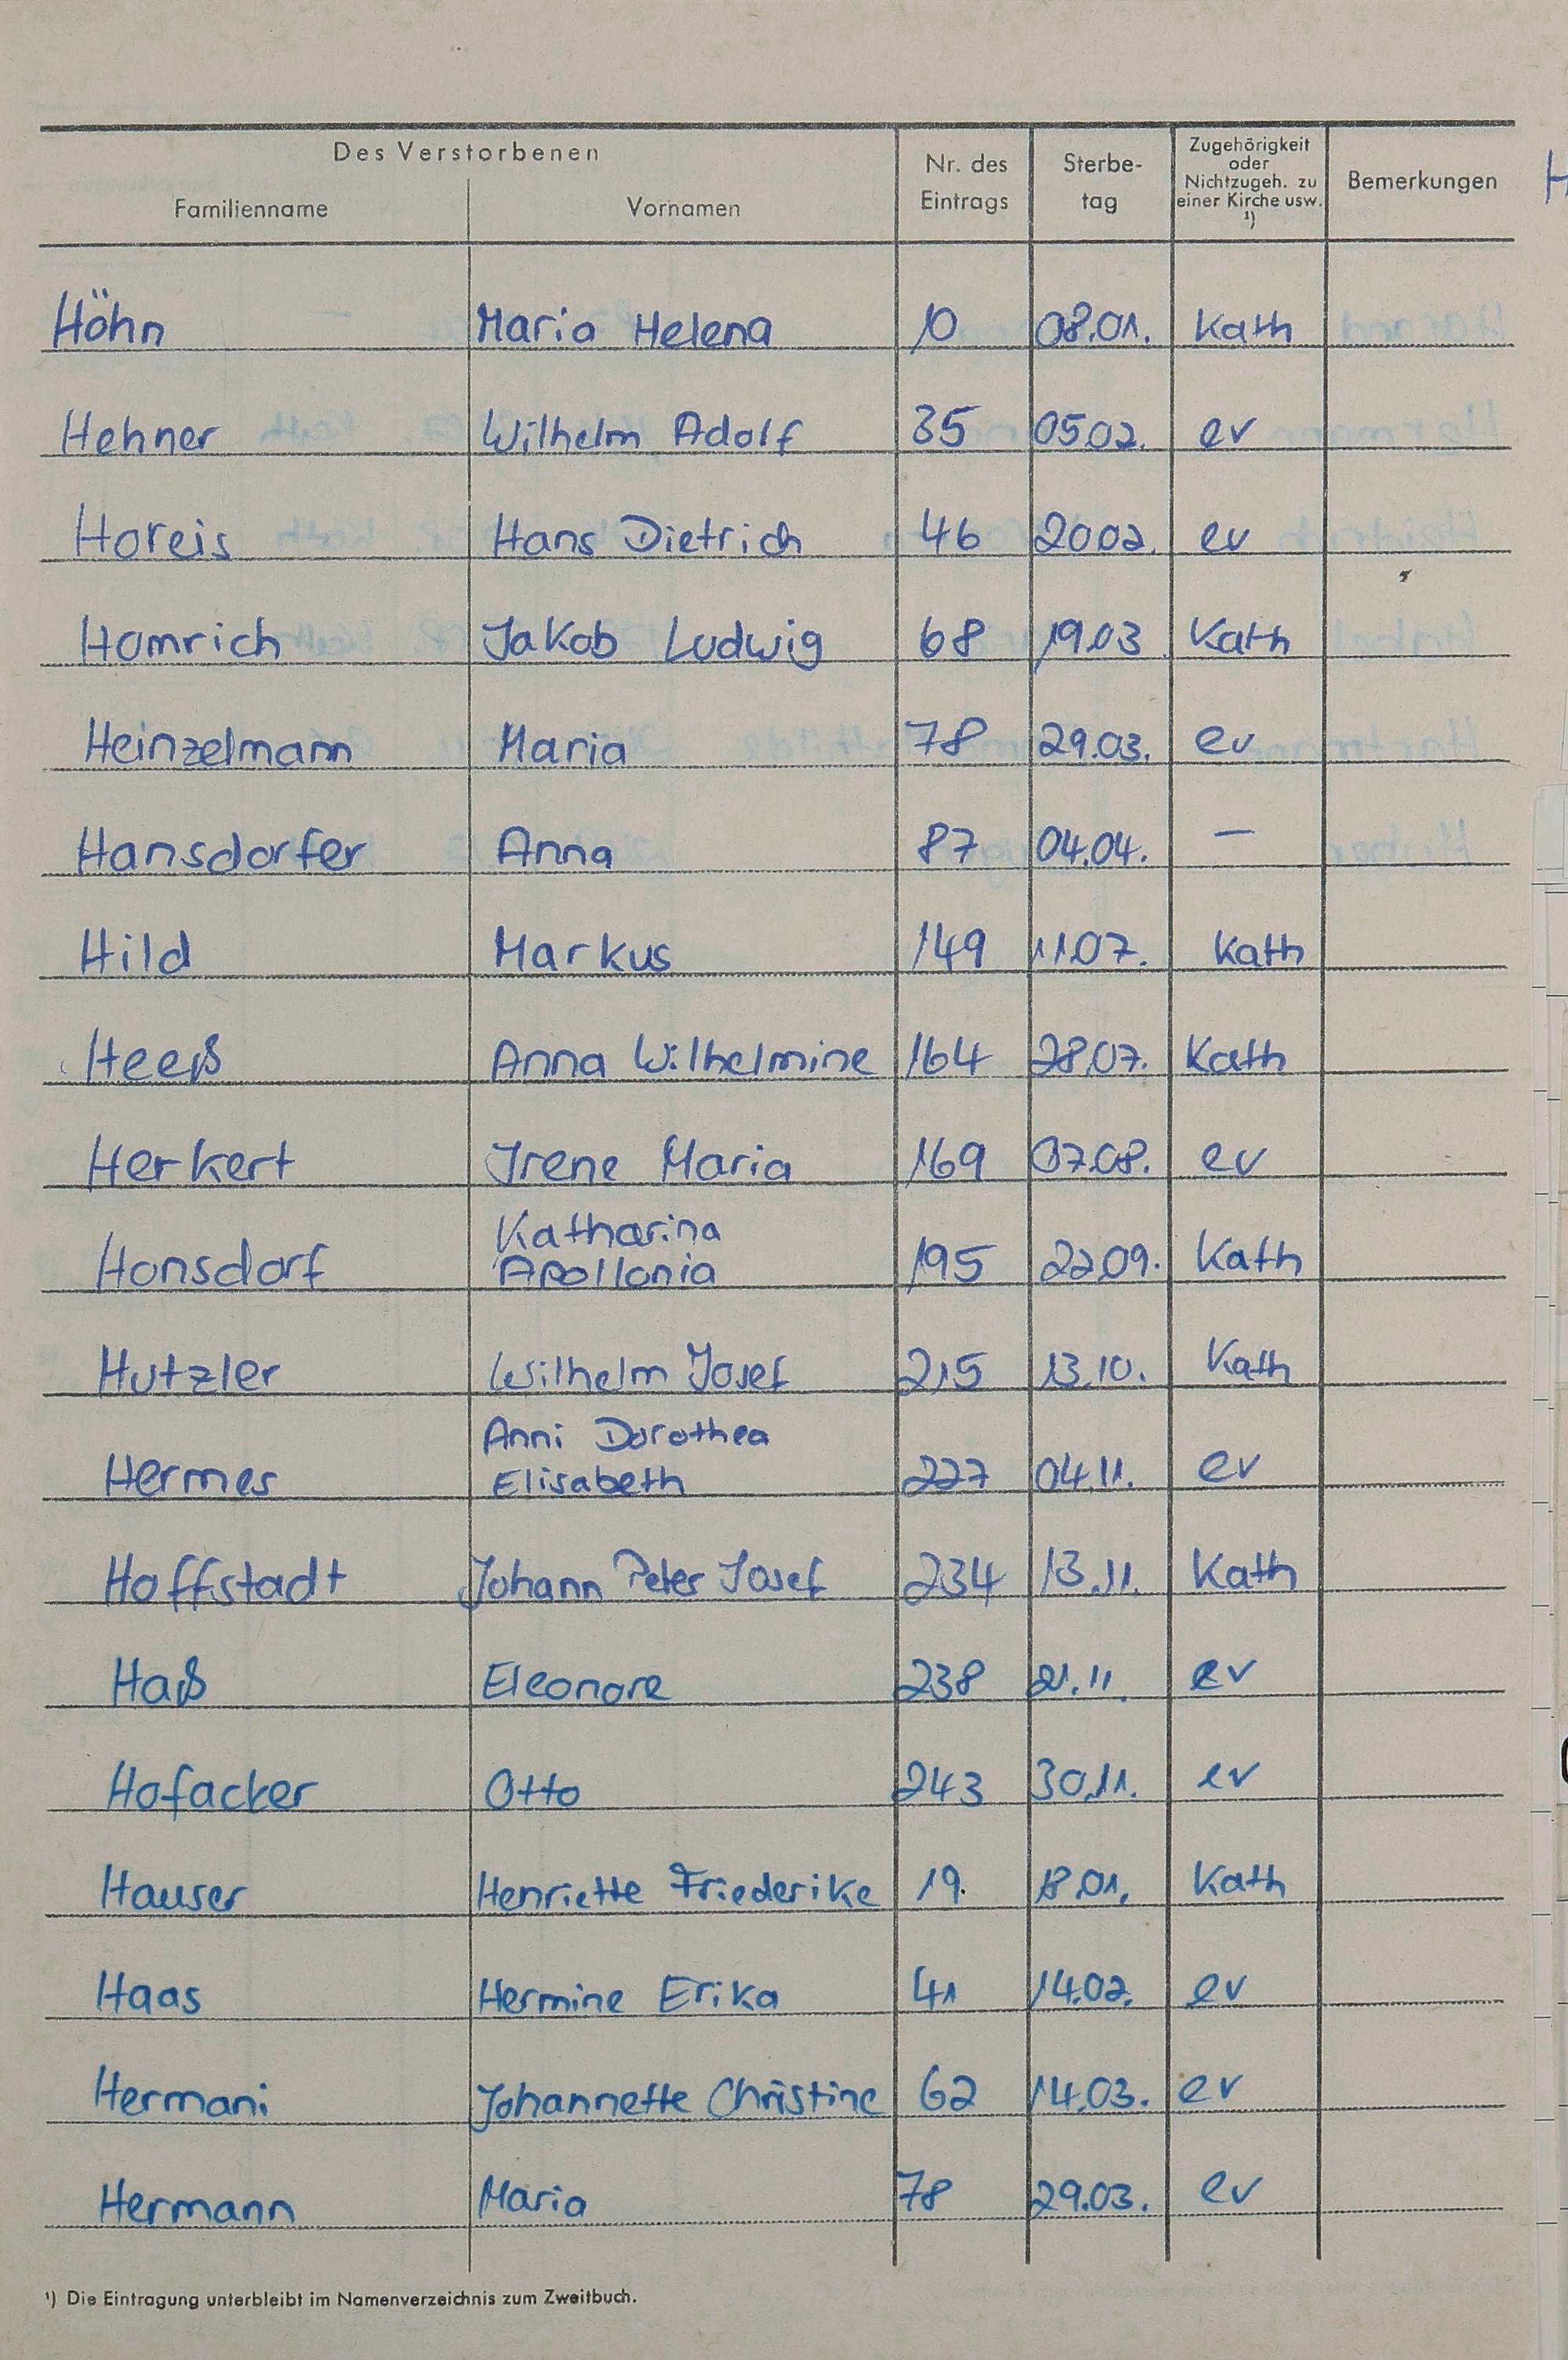 Des Verstorbenen
Familienname Vornamen Nr. des Eintrags Sterbe-tag Zugehörigkeit oder Nichtzugeh. zu einer Kirche usw. ¹) Bemerkungen H
Höhn Maria Helena 10 08.01. Kath
Hehner Wilhelm Adolf 35 05.02. ev
Horeis Hans Dietrich 46 20.02. ev
Homrich Jakob Ludwig 68 19.03 Kath
Heinzelmann Maria 78 29.03. ev
Hansdorfer Anna 87 04.04. —
Hild Markus 149 11.07. Kath
Heeß Anna Wilhelmine 164 28.07. Kath
Herkert Irene Maria 169 07.08. ev
Honsdorf Katharina Apollonia 195 22.09. Kath
Hutzler Wilhelm Josef 215 13.10. Kath
Hermes Anni Dorothea Elisabeth 227 04.11. ev
Hoffstadt Johann Peter Josef 234 13.11. Kath
Haß Eleonore 238 21.11. ev
Hofacker Otto 243 30.11. ev
Hauser Henriette Friederike 19. 18.01. Kath
Haas Hermine Erika 41 14.02. ev
Hermani Johannette Christine 62 14.03. ev
Hermann Maria 78 29.03. ev
¹) Die Eintragung unterbleibt im Namenverzeichnis zum Zweitbuch.